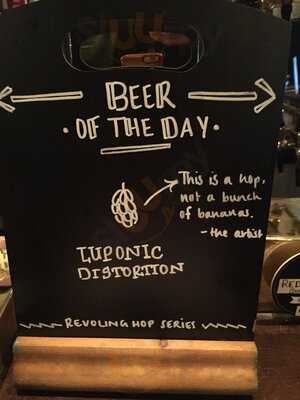 BEER
• OF THE DAY •
This is a hop,
not a bunch
of bananas.
- the artist
LUPONIC
DISTORTION
REVOLING HOP SERIES